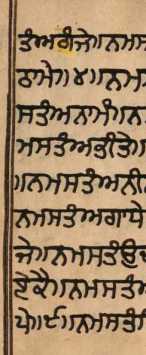 ਤੰਅਗੰਜੇ॥ਨਮਸ
ਠਾਮੇ॥੪॥ਨਮ
ਸਤੰਅਨਾਮੰ॥ਨ
ਮਸਤੰਅਭੀਤੇ॥
॥ਨਮਸਤੰਅਨੀ
ਨਮਸਤੰਅਗਾਧੇ
ਜੇ॥ਨਮਸਤੰਉਦ
ਏਕੈ॥ਨਮਸਤੰਅ
ਪੇ॥੮॥ਨਮਸਤੰ